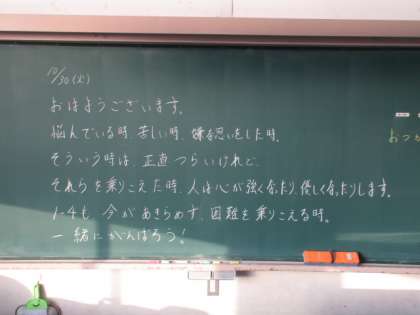 10/30(火)
おはようございます。
悩んでいる時、苦しい時、嫌な思いをした時、
そういう時は、正直つらいけれど、
それらを乗りこえた時、人は心が強くなったり、優しくなったりします。
1-4も、今があきらめず、困難を乗りこえる時。
一緒にがんばろう!
おつか